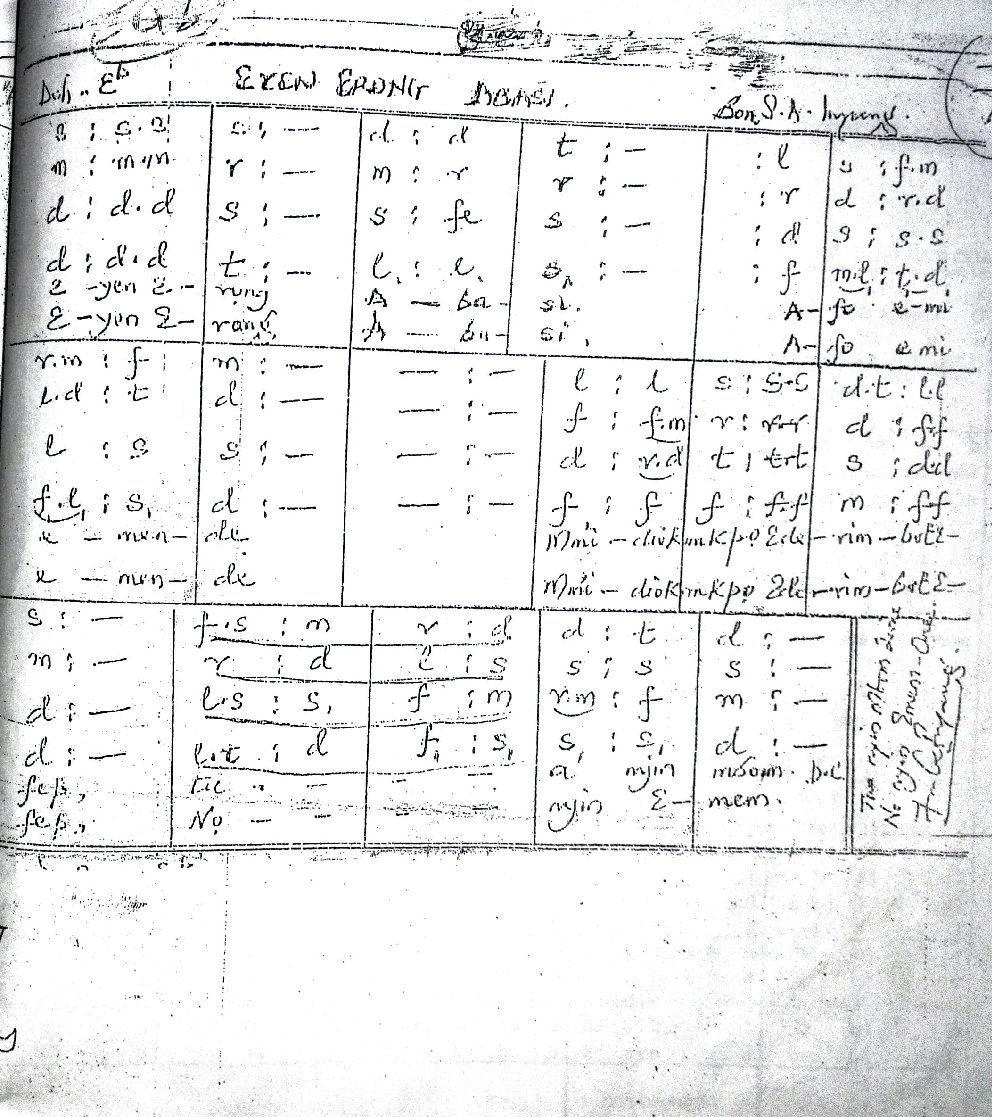 Doh .. Eb EYEN ERONG ABASI.
Bon. S. A. Inyang.
s : s.s s : — d : d t : — : l s : f.m
m : m.m r : — m : r r : — : r d : r.d
d : d.d s : — s : fe s : — : d s : s.s
d : d.d t : — l, : l, s, : — : f m.l, : t,.d
E -yen E- rong A — ba- si. A- fo e-mi
E-yen E- rong A — ba- si, A- fo e mi
r.m : f m : — — : — l : l s : s.s d.t : l.l
l.d : t d : — — : — f : f.m r : r.r d : f.f
l : s s : — — : — d : r.d t : t.t s : d.d
f.l, : s, d : — — : — f, : f f : f.f m : f.f
e — men- de. Mmi — diok mkpo Ede — rim — bot E-
e — men- de Mmi — diok mkpo Ede — rim — bot E-
s : — f.s : m r : d d : t d : —
m : — r : d l : s s : s s : —
d : — l.s : s, f : m r.m : f m : —
d : — l,.t, : d f, : s, s, : s, d : —
fep, tie - - - - a nyin mbom. D.C
fep., No - - - - nyin E- mem.